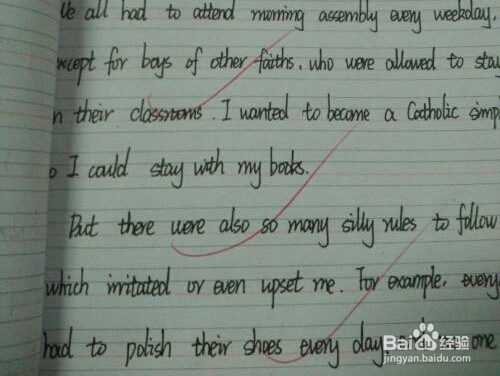 We all had to attend morning assembly every weekday,
except for boys of other faiths, who were allowed to stay
in their classrooms. I wanted to become a Catholic simply
so I could stay with my books.
But there were also so many silly rules to follow
which irritated or even upset me. For example, every
had to polish their shoes every day, one
Baidu经验
jingyan.baidu.com